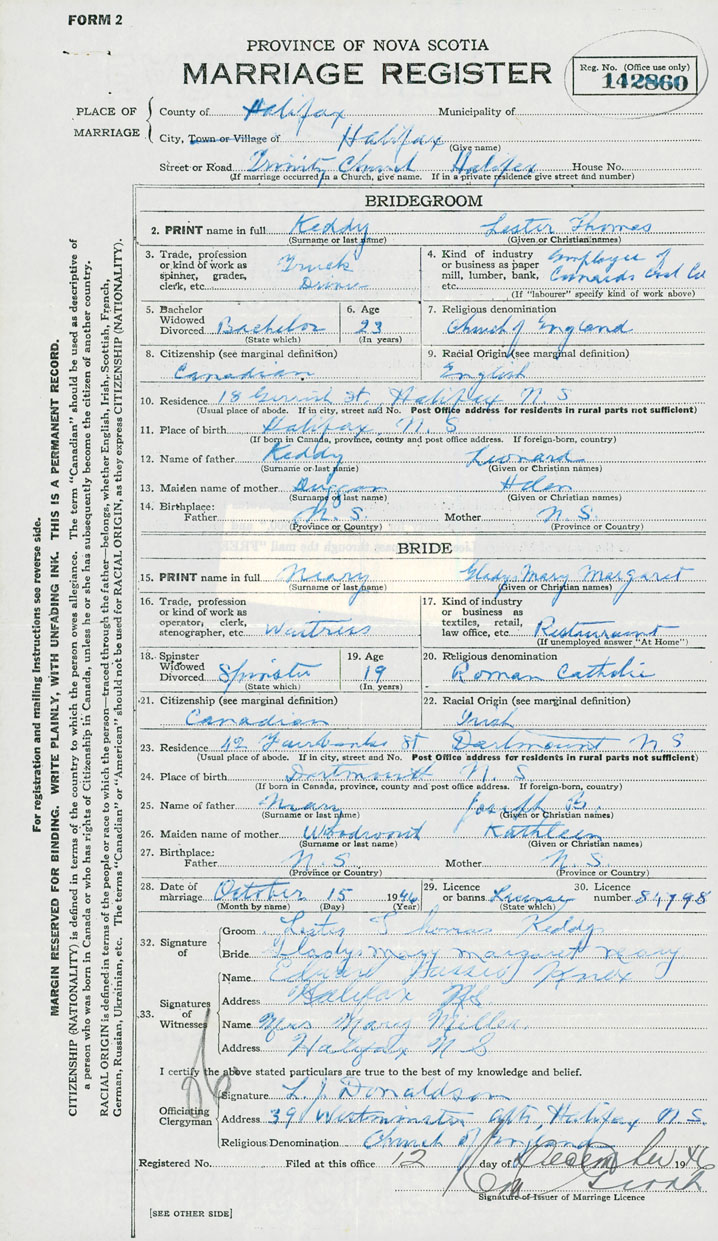 FORM 2
PROVINCE OF NOVA SCOTIA
MARRIAGE REGISTER
Reg. No. (Office use only)
142860
PLACE OF MARRIAGE
County of Halifax Municipality of
City, Town or Village of Halifax
(Give name)
Street or Road Trinity Church Halifax House No.
(If marriage occurred in a Church, give name. If in a private residence give street and number)
BRIDEGROOM
2. PRINT name in full Keddy Lester Thomas
(Surname or last name) (Given or Christian names)
3. Trade, profession or kind of work as spinner, grader, clerk, etc. Truck Driver
4. Kind of industry or business as paper mill, lumber, bank, etc. Employee of Coal Co
(If "labourer" specify kind of work above)
5. Bachelor Widowed Divorced Bachelor
(State which)
6. Age 23
(In years)
7. Religious denomination
Church of England
8. Citizenship (see marginal definition)
Canadian
9. Racial Origin (see marginal definition)
English
10. Residence 18 Gerrish St. Halifax N S
(Usual place of abode. If in city, street and No. Post Office address for residents in rural parts not sufficient)
11. Place of birth Halifax, N. S
(If born in Canada, province, county and post office address. If foreign-born, country)
12. Name of father Keddy Leonard
(Surname or last name) (Given or Christian names)
13. Maiden name of mother Duggan Helen
(Surname or last name) (Given or Christian names)
14. Birthplace:
Father N. S. Mother N. S.
(Province or Country) (Province or Country)
BRIDE
15. PRINT name in full Neary Gladys Mary Margaret
(Surname or last name) (Given or Christian names)
16. Trade, profession or kind of work as operator, clerk, stenographer, etc Waitress
17. Kind of industry or business as textiles, retail, law office, etc. Restaurant
(If unemployed answer "At Home")
18. Spinster Widowed Divorced Spinster
(State which)
19. Age 19
(In years)
20. Religious denomination
Roman Catholic
21. Citizenship (see marginal definition)
Canadian
22. Racial Origin (see marginal definition)
Irish
23. Residence 12 Fairbanks St Dartmount N S
(Usual place of abode. If in city, street and No. Post Office address for residents in rural parts not sufficient)
24. Place of birth Dartmouth N. S.
(If born in Canada, province, county and post office address. If foreign-born, country)
25. Name of father Neary Joseph B.
(Surname or last name) (Given or Christian names)
26. Maiden name of mother Kathleen
(Surname or last name) (Given or Christian names)
27. Birthplace:
Father N. S. Mother N. S.
(Province or Country) (Province or Country)
28. Date of marriage October 15 1946
(Month by name) (Day) (Year)
29. Licence or banns License
(State which)
30. Licence number 84798
32. Signature of
Groom Lester Thomas Keddy
Bride Gladys mary margaret neary
33. Signatures of Witnesses
Name Edward Knox
Address Halifax NS
Name Mrs Mary Miller
Address Halifax N S
I certify the above stated particulars are true to the best of my knowledge and belief.
Officiating Clergyman
Signature L. J. Donaldson
Address 39 Westminster Apts, Halifax N. S.
Religious Denomination Church of England
Registered No. Filed at this office 12 day of December 1946
Signature of Issuer of Marriage Licence
[SEE OTHER SIDE]
For registration and mailing instructions see reverse side.
MARGIN RESERVED FOR BINDING. WRITE PLAINLY, WITH UNFADING INK. THIS IS A PERMANENT RECORD.
CITIZENSHIP (NATIONALITY) is defined in terms of the country to which the person owes allegiance. The term "Canadian" should be used as descriptive of
a person who was born in Canada or who has rights of Citizenship in Canada, unless he or she has subsequently become the citizen of another country.
RACIAL ORIGIN is defined in terms of the people or race to which the person—traced through the father—belongs, whether English, Irish, Scottish, French,
German, Russian, Ukrainian, etc. The terms "Canadian" or "American" should not be used for RACIAL ORIGIN, as they express CITIZENSHIP (NATIONALITY).